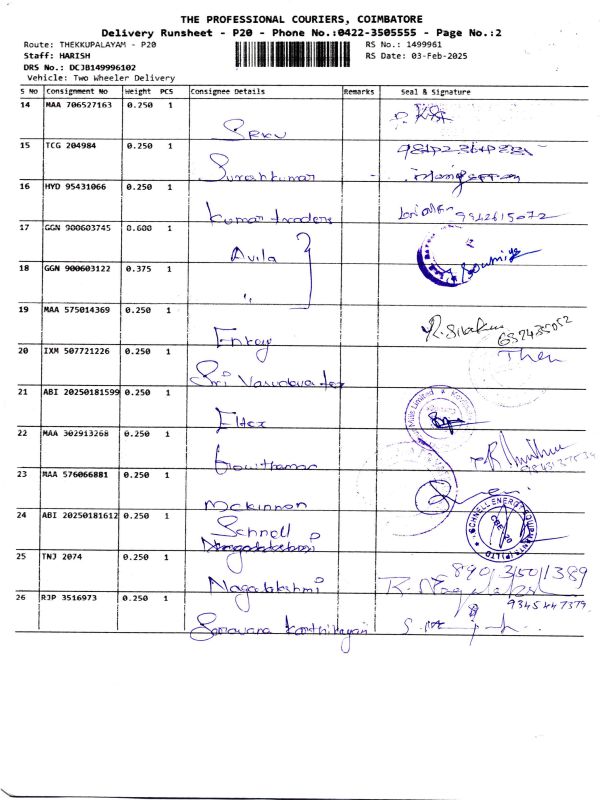 THE PROFESSIONAL COURIERS, COIMBATORE
Delivery Runsheet - P20 - Phone No.:0422-3505555 - Page No.:2
Route: THEKKUPALAYAM - P20
RS No.: 1499961
Staff: HARISH
RS Date: 03-Feb-2025
DRS No.: DCJB149996102
Vehicle: Two Wheeler Delivery
S No Consignment No Weight PCS Consignee Details Remarks Seal & Signature
14 MAA 706527163 0.250 1
15 TCG 204984 0.250 1
Sureshkumar
16 HYD 95431066 0.250 1
Kumar traders 9942615072
17 GGN 900603745 0.600 1
Avila
18 GGN 900603122 0.375 1
"
19 MAA 575014369 0.250 1
20 IXM 507721226 0.250 1
Sri Vasudeva tex
21 ABI 20250181599 0.250 1
Eltex
22 MAA 302913268 0.250 1
Gowthaman
23 MAA 576066881 0.250 1
Mckinnon
24 ABI 20250181612 0.250 1
Schnell SCHNELL ENERGY EQUIPMENTS (P) LTD
25 TNJ 2074 0.250 1
89013501389
Nagalakshmi
26 RJP 3516973 0.250 1
9345447379
Saravana Karthikeyan